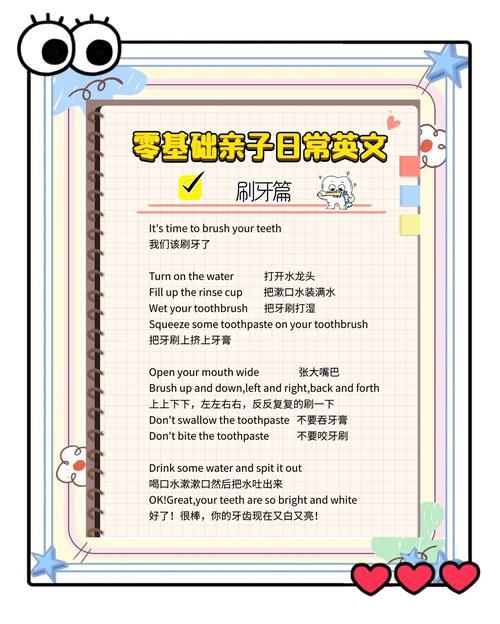 零基础亲子日常英文
刷牙篇
It's time to brush your teeth
我们该刷牙了
Turn on the water 打开水龙头
Fill up the rinse cup 把漱口水装满水
Wet your toothbrush 把牙刷打湿
Squeeze some toothpaste on your toothbrush
把牙刷上挤上牙膏
Open your mouth wide 张大嘴巴
Brush up and down,left and right,back and forth
上上下下，左左右右，反反复复的刷一下
Don't swallow the toothpaste 不要吞牙膏
Don't bite the toothpaste 不要咬牙刷
Drink some water and spit it out
喝口水漱漱口然后把水吐出来
OK!Great,your teeth are so bright and white
好了！很棒，你的牙齿现在又白又亮！